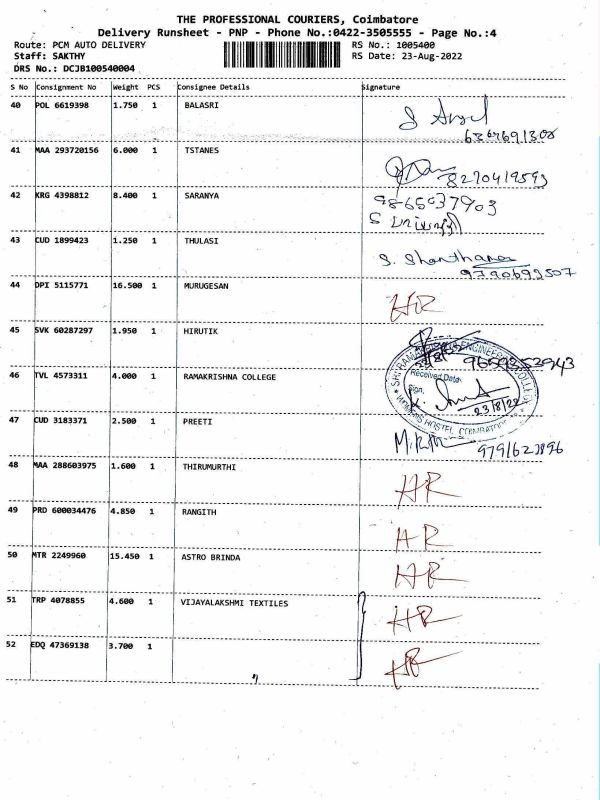 THE PROFESSIONAL COURIERS, Coimbatore
Delivery Runsheet - PNP - Phone No.:0422-3505555 - Page No.:4
Route: PCM AUTO DELIVERY RS No.: 1005400
Staff: SAKTHY RS Date: 23-Aug-2022
DRS No.: DCJB100540004
S No Consignment No Weight PCS Consignee Details Signature
40 POL 6619398 1.750 1 BALASRI
41 MAA 293720156 6.000 1 TSTANES
8270419593
42 KRG 4398812 8.400 1 SARANYA
9865037903
43 CUD 1899423 1.250 1 THULASI
S. Shanthamani
9790693507
44 DPI 5115771 16.500 1 MURUGESAN HR
45 SVK 60287297 1.950 1 HIRUTIK
46 TVL 4573311 4.000 1 RAMAKRISHNA COLLEGE
Received Date
Sign.
23/8/22
WOMENS HOSTEL COIMBATORE
47 CUD 3183371 2.500 1 PREETI
9791623896
48 MAA 288603975 1.600 1 THIRUMURTHI HR
49 PRD 600034476 4.850 1 RANGITH HR
50 MTR 2249960 15.450 1 ASTRO BRINDA HR
51 TRP 4078855 4.600 1 VIJAYALAKSHMI TEXTILES HR
52 EDQ 47369138 3.700 1 " HR